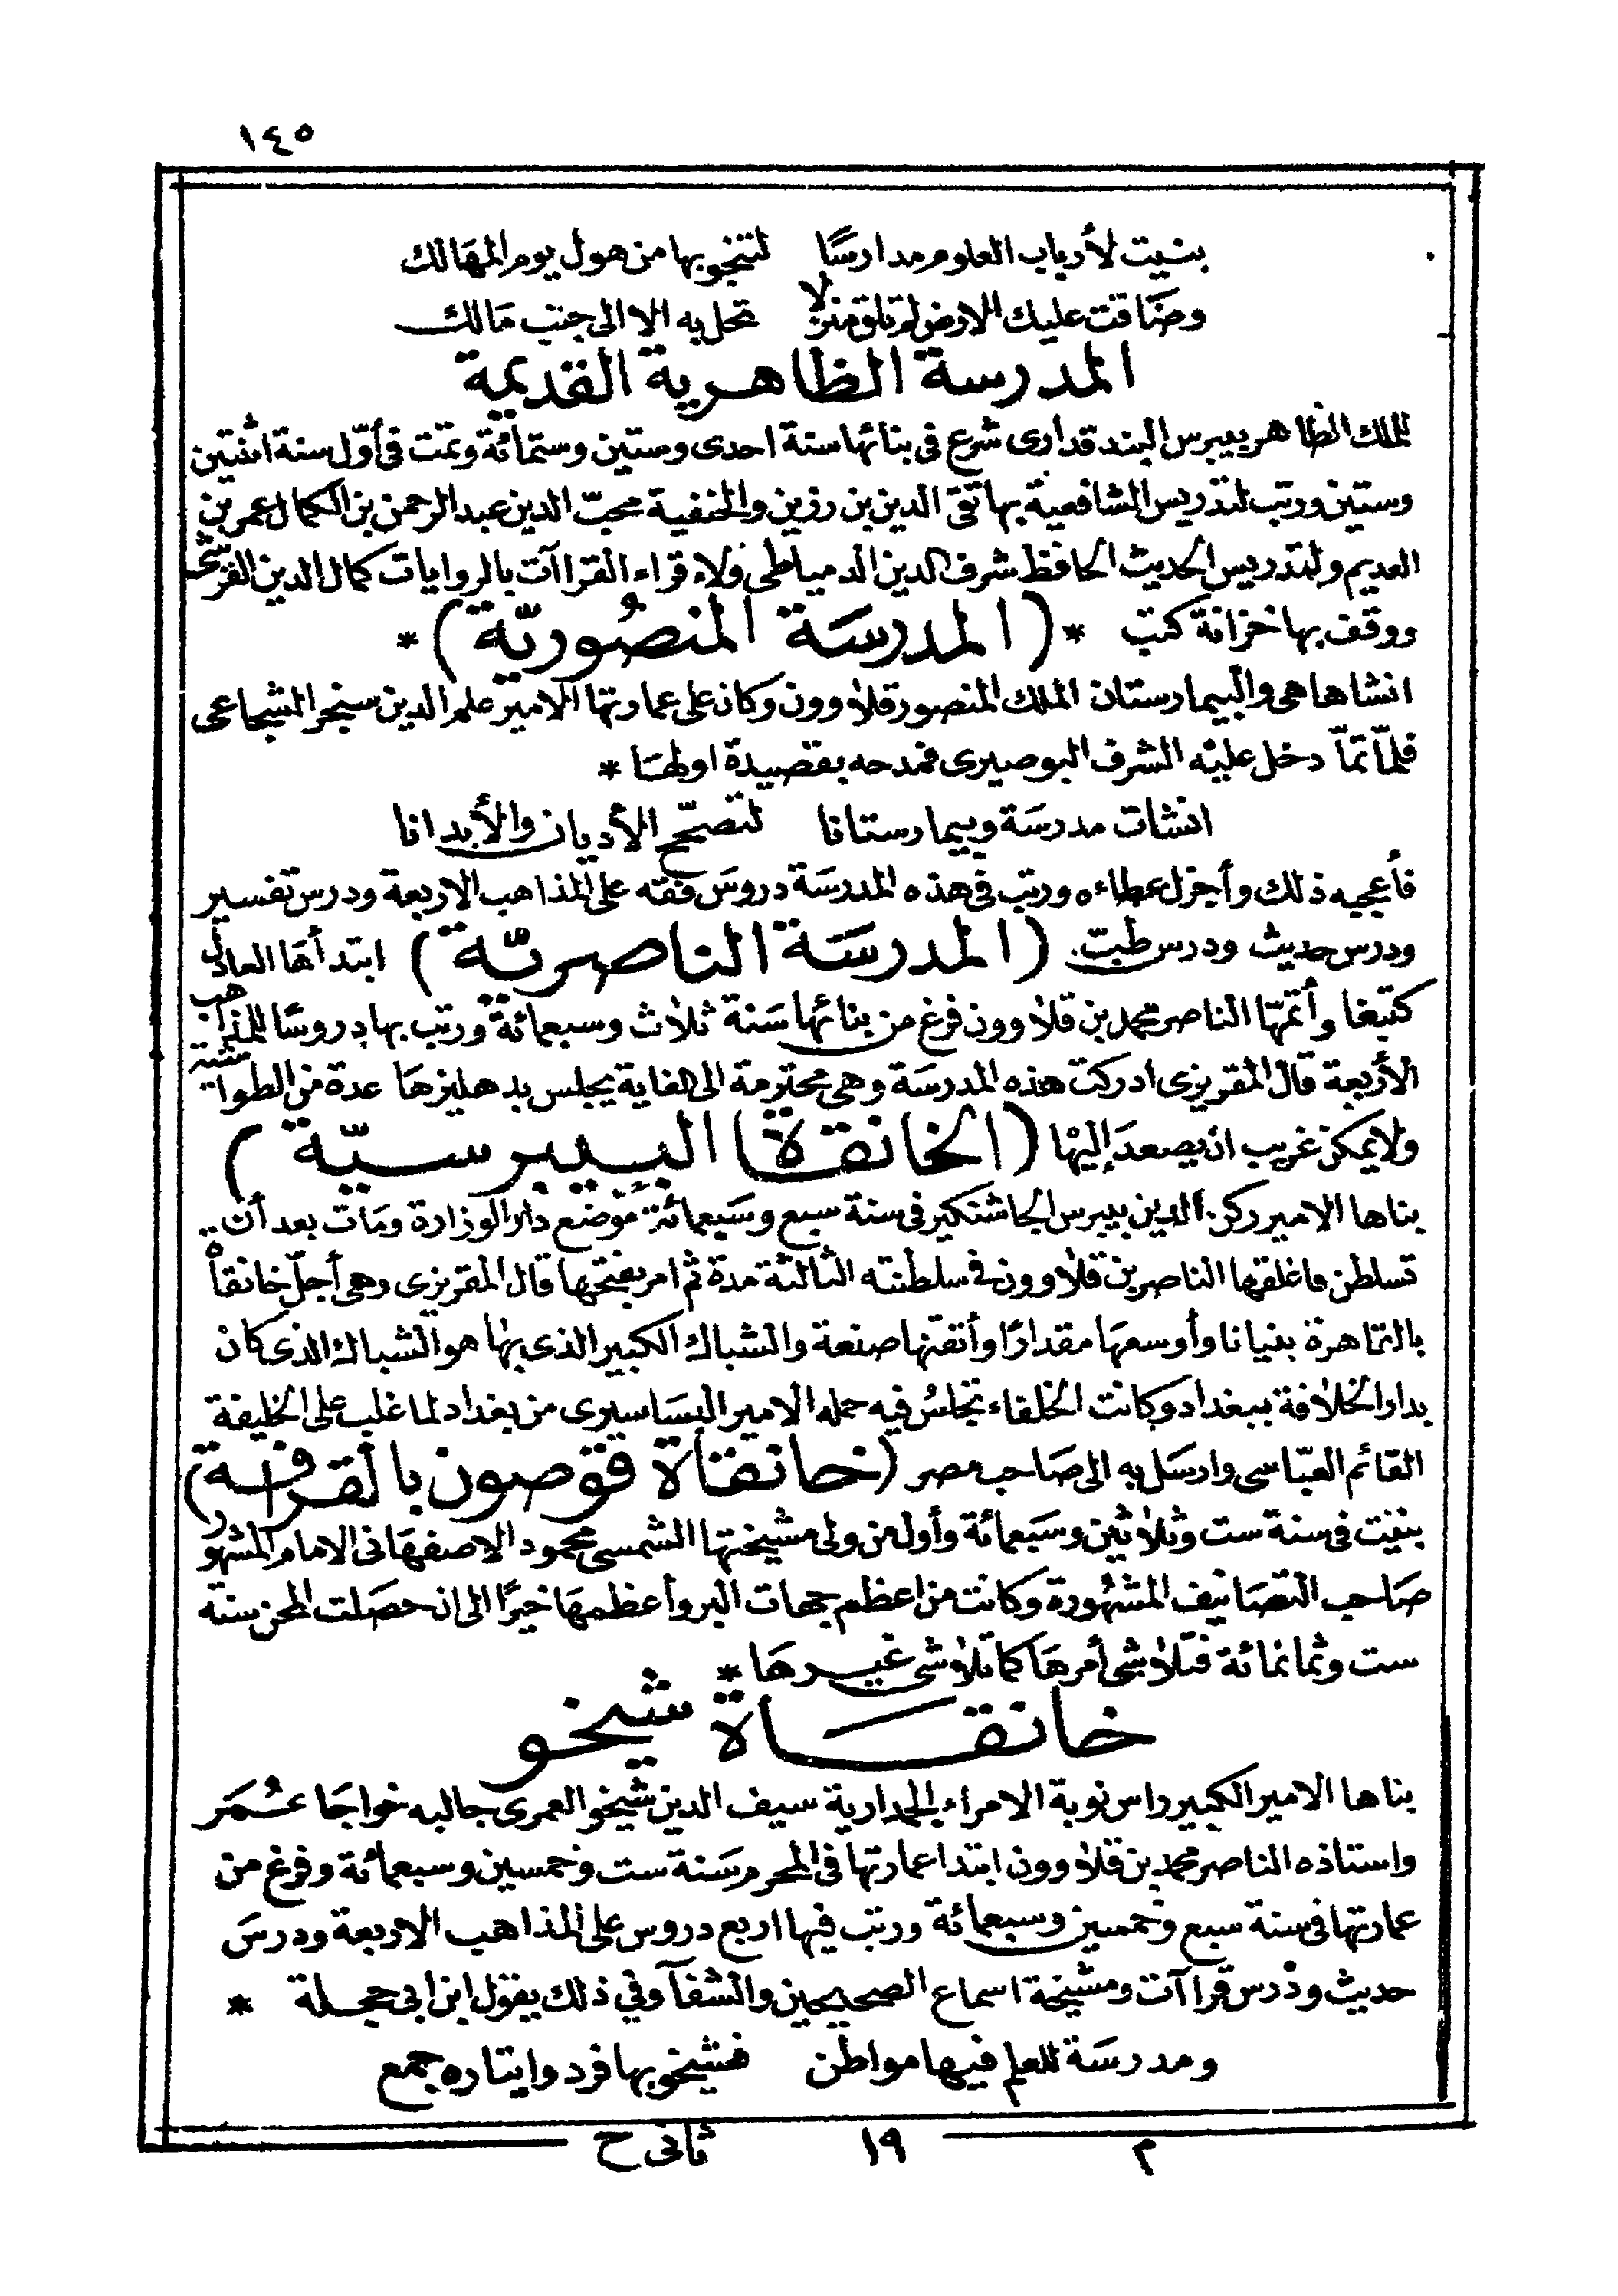 ١٤٥
بنيت لأرباب العلوم مدارسًا لتنجو بها من هول يوم المهالك
وضاقت عليك الارض لم تلق منزلا تحل به الا الى جنب مالك
المدرسة الظاهرية القديمة
للملك الظاهر بيبرس البندقدارى شرع فى بنائها سنة احدى وستين وستمائة وتمت فى أوّل سنة اثنتين
وستين ورتب لتدريس الشافعية بها تقى الدين بن رزين والحنفية محبّ الدين عبد الرحمن بن الكمال عمر بن
العديم ولتدريس الحديث الحافظ شرف الدين الدمياطى ولاقراء القراآت بالروايات كمال الدين القرشى
ووقف بها خزانة كتب * (المدرسَة المنصُوريّة) *
انشاها هى والبيمارستان الملك المنصور قلاوون وكان على عمارتها الامير علم الدين سنجر الشجاعى
فلمّا تمّا دخل عليْه الشرف البوصيرى فمدحه بقصيدة اولهَا *
انشات مدرسَة وبيمارستانا لتصحّح الأديان والأبدانا
فأعجبه ذلك وأجزل عطاءه ورتب فى هذه المدرسَة دروسَ فقه على المذاهب الاربعة ودرس تفسير
ودرس حديث ودرس طبّ. (المدرسَة الناصريّة) ابتدأهَا العادل
كتبغا وأتمّها الناصر محمد بن قلاوون فرغ من بنائها سَنة ثلاث وسبعمائة ورتب بها دروسًا للمذاهب
الأربعة قال المقريزى ادركت هذه المدرسَة وهى محترمة الى الغاية يجلس بدهليزهَا عدة من الطواشية
ولا يمكن غريب ان يصعدَ إليْها (الخانقاة البيبرسيّة)
بناها الامير ركن الدين بيبرس الجاشنكير فى سنة سبع وسَبعمائة موضع دار الوزارة ومَات بعد أن
تسلطن فاغلقها الناصر بن قلاوون فى سلطنته الثالثة مدة ثم امر بفتحها قال المقريزى وهى أجلّ خانقاْه
بالقاهرة بنيانا وأوسعهَا مقدارًا وأتقنها صنعة والشباك الكبير الذى بها هو الشباك الذى كان
بدار الخلافة ببغداد وكانت الخلفاء تجلسُ فيه حمله الامير البسَاسيرى من بغداد لما غلب على الخليفة
القائم العبّاسى وارسَل به الى صَاحب مصر (خانقاة قوصون بالقرافة)
بنيت فى سنة ست وثلاثين وسَبعمائة وأول من ولى مشيختها الشمسى محمود الاصفهَانى الامام المشهور
صَاحب التصَانيف المشهُورة وكانت من اعظم جهات البر وأعظمهَا خيرًا الى ان حصَلت المحن سنة
ست وثمانمائة فتلاشى أمرهَا كما تلاشى غيرهَا *
خانقَاة شيخو
بناها الامير الكبير راس نوبة الامراء الجمدارية سيف الدين شيخو العمرى جالبه خواجَا عُمَر
واستاذه الناصر محمد بن قلاوون ابتدا عمارتها فى المحرم سَنة ست وخمسين وسبعمائة وفرغ من
عمارتها فى سنة سبع وخمسين وسبعمائة ورتب فيها اربع دروس على المذاهب الاربعة ودرسَ
حديث ودرس قراآت ومشيخة اسماع الصحيحين والشفآ وفي ذلك يقول ابن ابى حجلة *
ومدرسَة للعلم فيها مواطن فشيخو بها فرد وايتاره جمع
م ١٩ ثانى ح